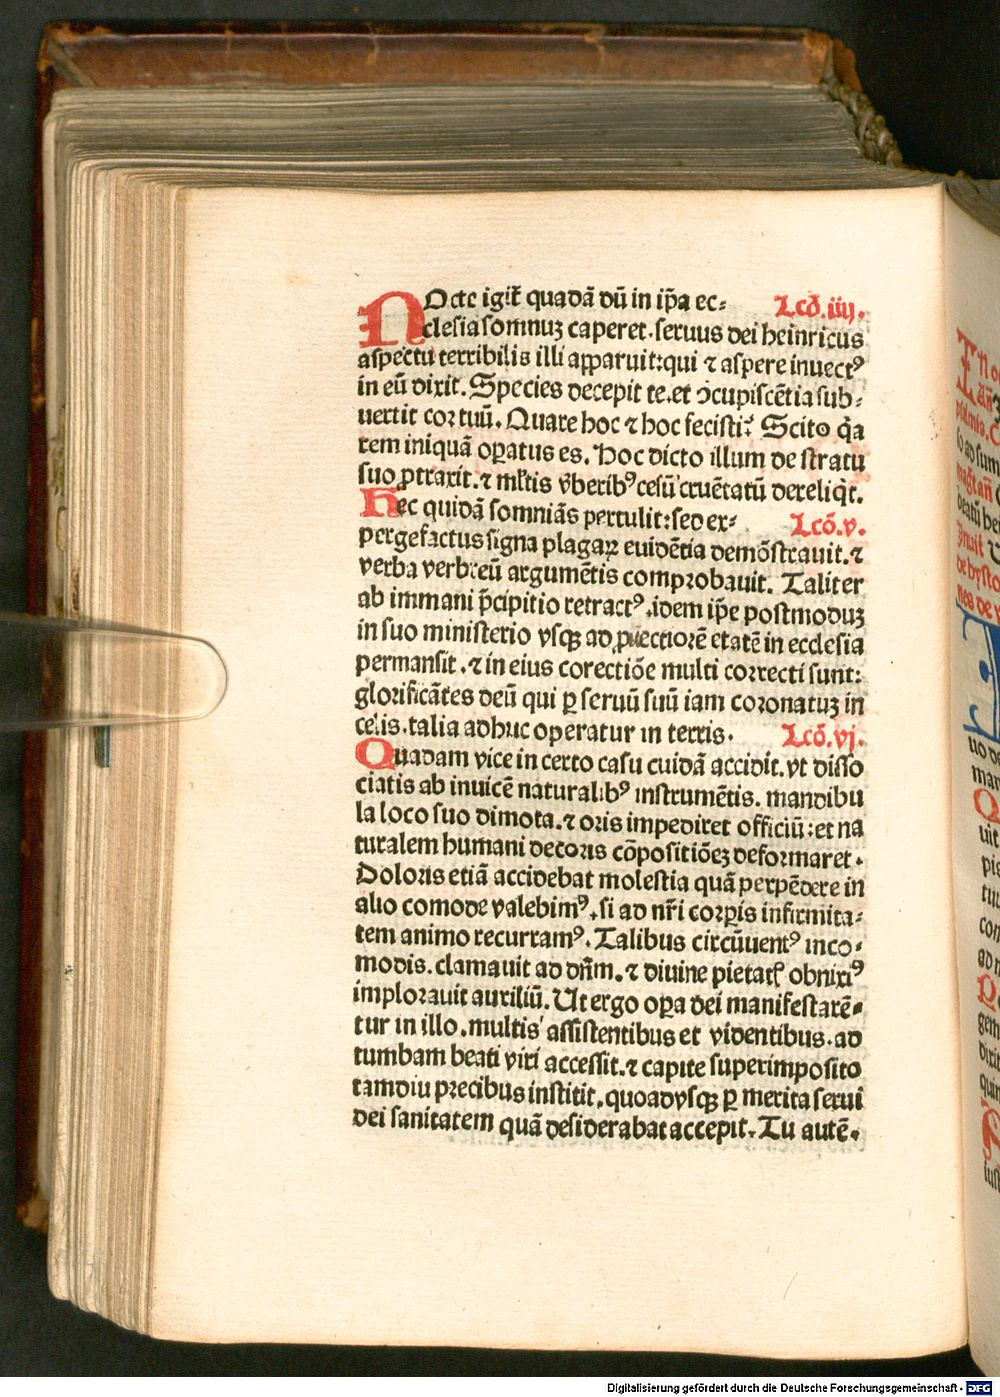 Nocte igit᷑ quadã dũ in ip̃a ec⸗ Lcõ.iiij.
clesia somnuꝫ caperet. seruus dei heinricus
aspectu terribilis illi apparuit: qui ⁊ aspere inuectꝰ
in eũ dixit. Species decepit te. et ↄcupiscẽtia sub⸗
uertit cor tuũ. Quare hoc ⁊ hoc fecisti? Scito q̃a
rem iniquã oꝑatus es. Hoc dicto illum de stratu
suo ꝓtraxit. ⁊ ml̃tis v̾beribꝰ cesũ cruẽtatũ dereliq̇t.
Hec quidã somniãs pertulit: sed ex⸗ Lcõ.v.
pergefactus signa plagaꝝ euidẽtia demõstrauit. ⁊
verba verbreũ argumẽtis comprobauit. Taliter
ab immani p̃cipitio retractꝰ. idem ip̃e postmoduꝫ
in suo ministerio vsqꝫ ad ꝓuectiorẽ etatẽ in ecclesia
permansit. ⁊ in eius corectiõe multi correcti sunt:
glorificãtes deũ qui ꝑ seruũ suũ iam coronatuꝫ in
celis. talia adhuc operatur in terris. Lcõ.vj.
Quadam vice in certo casu cuidã accidit. vt disso
ciatis ab inuicẽ naturalibꝰ instrumẽtis. mandibu
la loco suo dimota. ⁊ oris impediret officiũ: et na
turalem humani decoris cõpositiõeꝫ deformaret.
Doloris etiã accidebat molestia quã perpẽdere in
alio comode valebimꝰ. si ad nr̃i corꝑis infirmita⸗
tem animo recurramꝰ. Talibus circũuentꝰ inco⸗
modis. clamauit ad dñm. ⁊ diuine pietatꝭ obnixiꝰ
implorauit auxiliũ. Ut ergo oꝑa dei manifestarẽ⸗
tur in illo. multis assistentibus et videntibus. ad
tumbam beati viri accessit. ⁊ capite superimposito
tamdiu precibus institit. quoadvsqꝫ ꝑ merita serui
dei sanitatem quã desiderabat accepit. Tu autẽ.
Digitalisierung gefördert durch die Deutsche Forschungsgemeinschaft - DFG